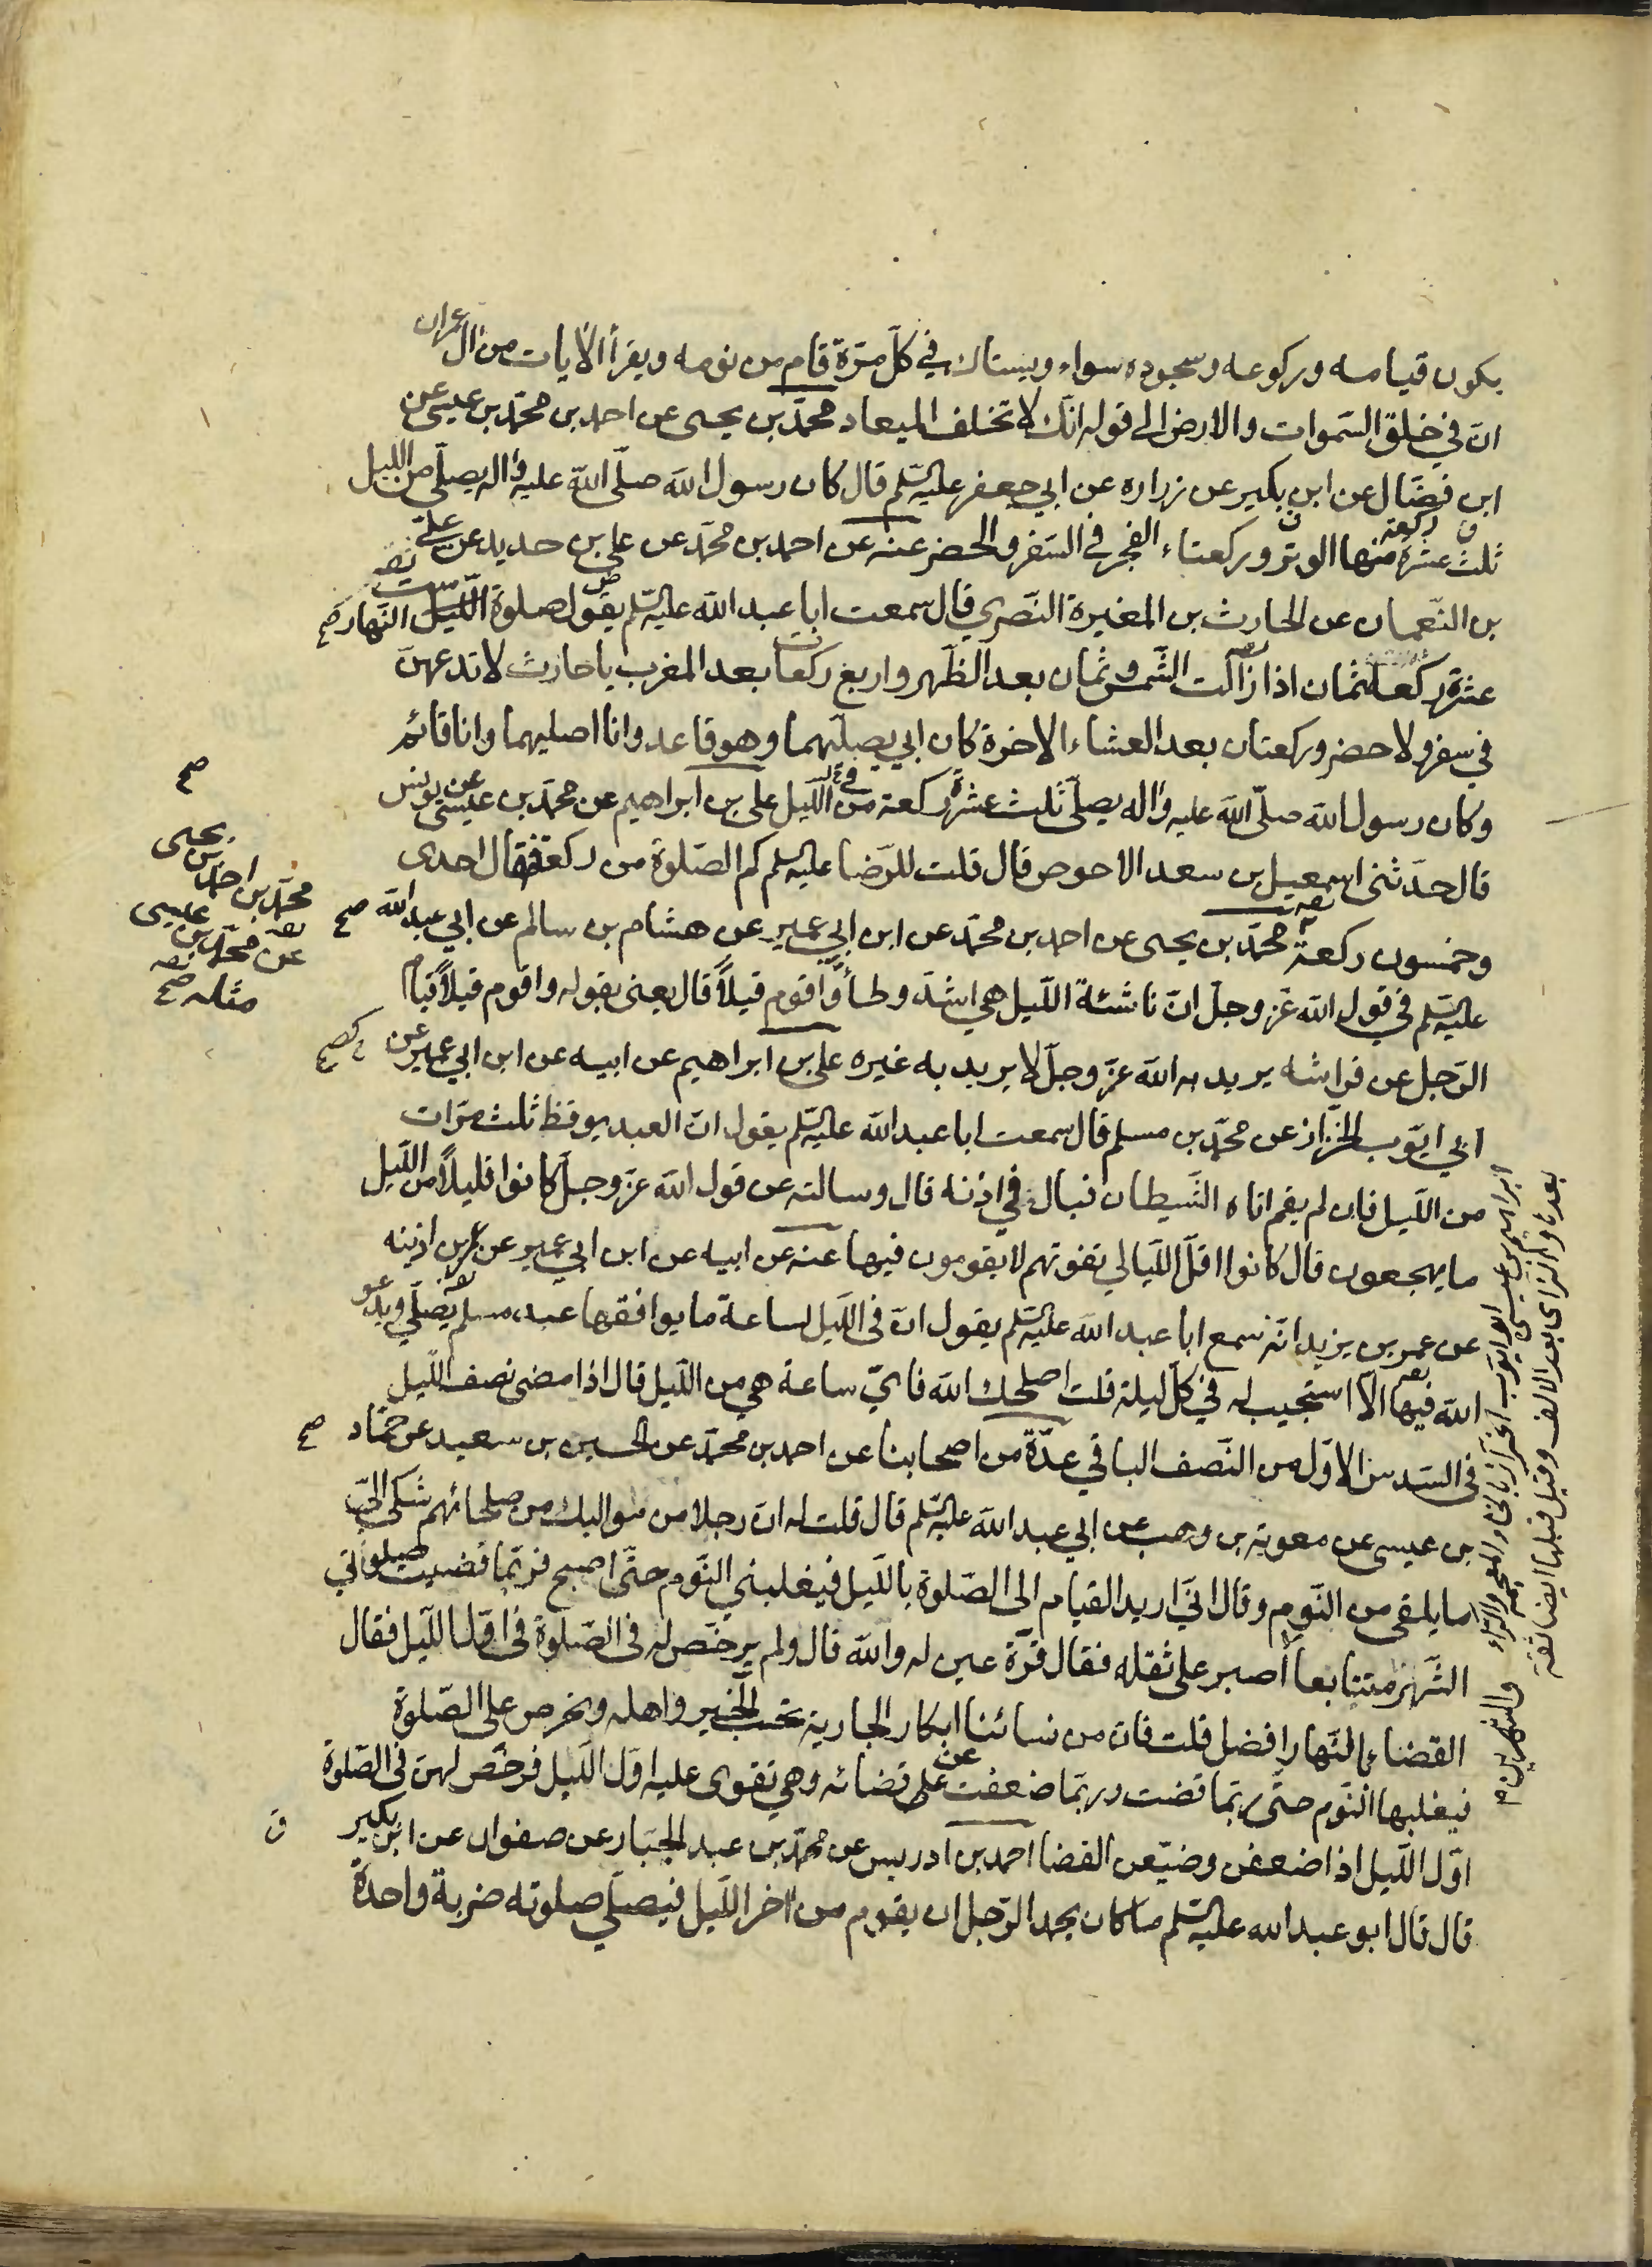 يكون قيامه وركوعه وسجوده سواء ويستاك في كلّ مرّة قام من نومه ويقرأ الآيات من آل عمران
انّ في خلق السّموات والارض الى قوله انّك لا تخلف الميعاد محمّد بن يحيى عن احمد بن محمّد بن عيسى عن
ابن فضّال عن ابن بكير عن زراره عن ابي جعفر عليه السّلم قال كان رسول الله صلّى الله عليه واله يصلّي من الليل
ثلث عشرة ركعة منها الوتر وركعتاء الفجر في السّفر والحضر عنه عن احمد بن محمّد عن علي بن حديد عن عليّ
بن النّعمان عن الحارث بن المغيرة النّصري قال سمعت ابا عبد الله عليه السّلم يقول صلوة النّهار ستّ
عشرة ركعة ثمان اذا زالت الشّمس وثمان بعد الظّهر واربع ركعات بعد المغرب يا حارث لا تدعهنّ
في سفر ولا حضر وركعتان بعد العشاء الاخرة كان ابي يصلّيهما وهو قاعد وانا اصليهما وانا قائم
وكان رسول الله صلّى الله عليه واله يصلّي ثلث عشرة ركعة من اللّيل علي بن ابراهيم عن محمّد بن عيسى عن يونس
قال حدّثني اسمعيل بن سعد الاحوص قال قلت للرّضا عليه السلم كم الصّلوة من ركعة فقال احدى
وخمسون ركعة محمّد بن يحيى عن احمد بن محمّد عن ابن ابي عمير عن هشام بن سالم عن ابي عبد الله
عليه السّلم في قول الله عزّ وجلّ انّ ناشئة اللّيل هي اشدّ وطأً واقوم قيلاً قال يعني بقوله واقوم قيلاً قيام
الرّجل عن فراشه يريد به الله عزّ وجلّ لا يريد به غيره علي بن ابراهيم عن ابيه عن ابن ابي عمير عن
ابي ايّوب الخزّاز عن محمّد بن مسلم قال سمعت ابا عبد الله عليه السّلم يقول انّ العبد يوقظ ثلث مرّات
من اللّيل فان لم يقم اتاه الشّيطان فبال في اذنه قال وسالته عن قول الله عزّ وجلّ كانوا قليلاً من اللّيل
ما يهجعون قال كانوا اقلّ اللّيالي تفوتهم لا يقومون فيها عنه عن ابيه عن ابن ابي عمير عن عمر بن اذينه
عن عمر بن يزيد انّه سمع ابا عبد الله عليه السّلم يقول انّ في اللّيل لساعة ما يوافقها عبد مسلم يصلّي ويدعو
الله فيها الّا استجيب له في كلّ ليلة قلت اصلحك الله فايّ ساعة هي من اللّيل قال اذا مضى نصف اللّيل
في السّدس الاوّل من النّصف الباقي عدّة من اصحابنا عن احمد بن محمّد عن الحسين بن سعيد عن حمّاد
بن عيسى عن معوية بن وهب عن ابي عبد الله عليه السّلم قال قلت له انّ رجلا من مواليك من صلحائهم شكى اليّ
ما يلقى من النّوم وقال انّي اريد القيام الى الصّلوة باللّيل فيغلبني النّوم حتّى اصبح فربّما قضيت صلواتي
الشّهر متتابعا أصبر على ثقله فقال قرّة عين له والله قال ولم يرخّص له في الصّلوة في اوّل اللّيل فقال
القضاء بالنّهار افضل قلت فانّ من نسائنا ابكار الجارية تحبّ الخير واهله وتحرص على الصّلوة
فيغلبها النّوم حتّى ربّما قضت وربّما ضعفت عن قضائه وهي تقوى عليه اوّل اللّيل فرخّص لهنّ في الصّلوة
اوّل اللّيل اذا ضعفن وضيّعن القضا احمد بن ادريس عن محمّد بن عبد الجبّار عن صفوان عن ابن بكير
قال قال ابو عبد الله عليه السّلم ما كان يجهد الرّجل ان يقوم من اخر اللّيل فيصلّي صلوته ضربة واحدة
صح
محمّد بن يحيى
عن احمد بن
محمّد بن عيسى
مثله صح
ابراهيم بن عيسى ابو ايّوب الخزّاز بالخاء المعجمة والرّاء
بعدها والزاى بعد الالف وقيل قبلها ايضا ثقة